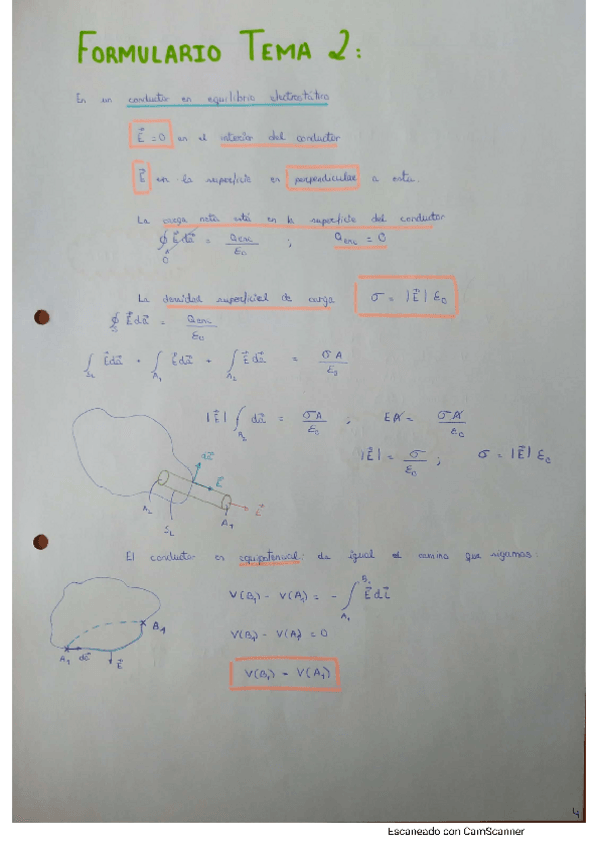 FORMULARIO TEMA 2:
En un conductor en equilibrio electrostático
E⃗ = 0 en el interior del conductor
E⃗ en la superficie es perpendicular a esta.
La carga neta está en la superficie del conductor
∮ E⃗ da⃗ = Qenc / ε₀ ; Qenc = 0
0
La densidad superficial de carga σ = |E⃗| ε₀
∮_S E⃗ da⃗ = Qenc / ε₀
∫_SL E⃗ da⃗ + ∫_A1 E⃗ da⃗ + ∫_A2 E⃗ da⃗ = σA / ε₀
|E⃗| ∫_A2 da⃗ = σA / ε₀ ; EA = σA / ε₀
|E⃗| = σ / ε₀ ; σ = |E⃗| ε₀
da⃗
E⃗
E⃗
A2
SL
A1
El conductor es equipotencial: da igual el camino que sigamos:
V(B1) - V(A1) = - ∫_A1^B1 E⃗ dl⃗
V(B1) - V(A1) = 0
V(B1) = V(A1)
B1
A1
E⃗
4
Escaneado con CamScanner